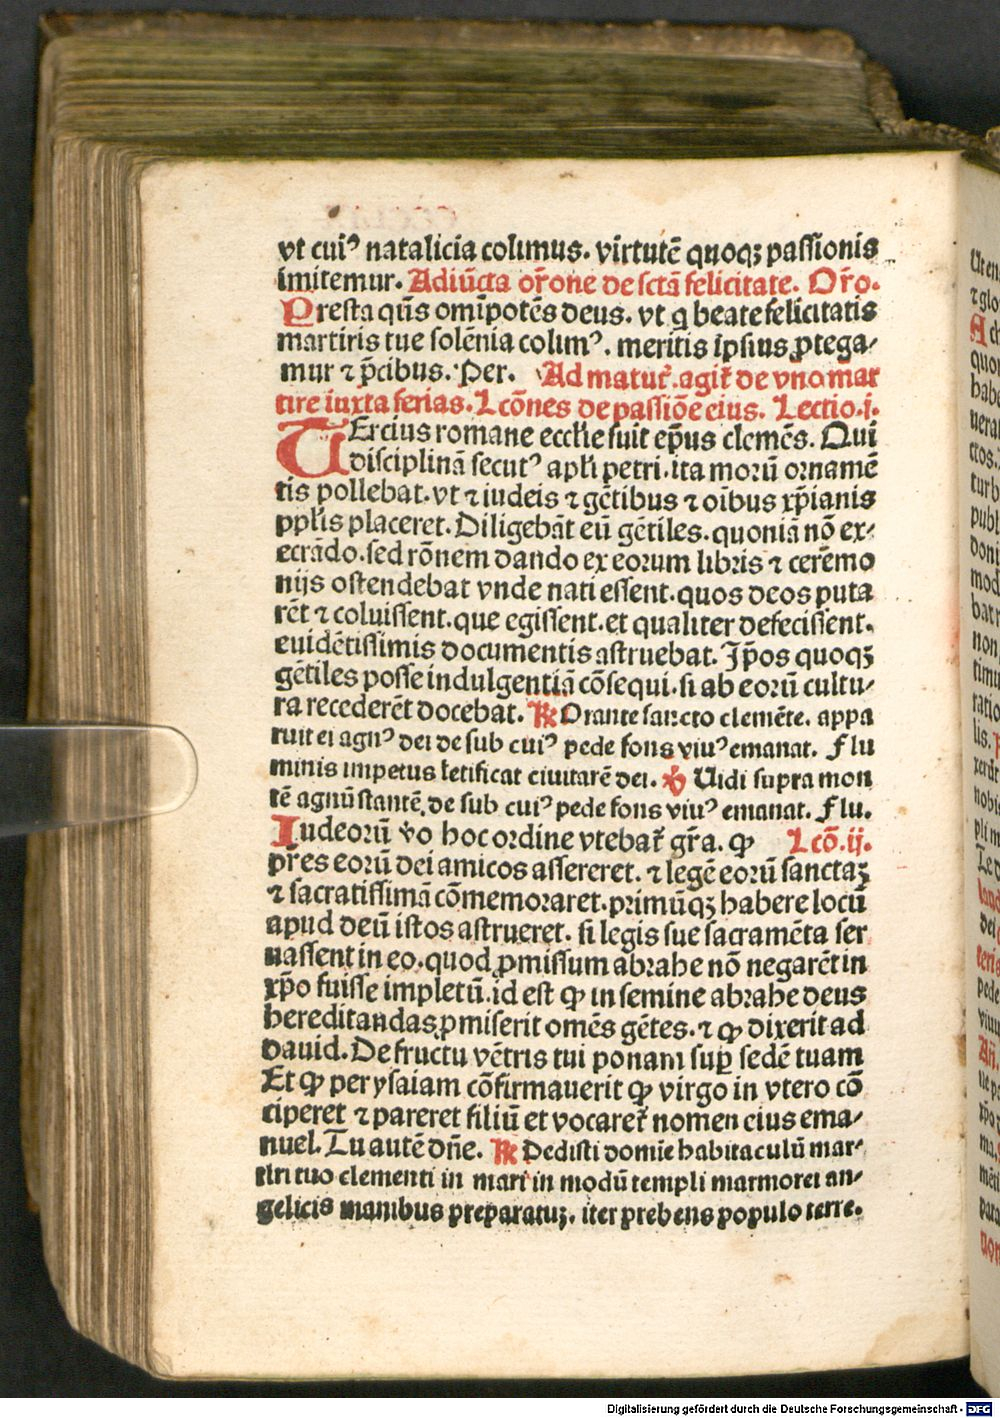 vt cuiꝰ natalicia colimus. virtutē quoqꝫ passionis
imitemur. Adiūcta or̄one de sctā felicitate. Or̄o.
Presta qūs omīpotēs deus. vt q beate felicitatis
martiris tue solēnia colimꝰ. meritis ipsius ꝓtega⸗
mur ⁊ p̄cibus. Per. Ad matut᷑. agit᷑ de vno mar
tire iuxta ferias. Lcōnes de passiōe eius. Lectio .i.
TErcius romane eccl̄ie fuit ep̄us clemēs. Qui
disciplinā secutꝰ apl̄i petri. ita morū ornamē
tis pollebat. vt ⁊ iudeis ⁊ gētibus ⁊ oībus xp̄ianis
ppl̄is placeret. Diligebāt eū gētiles. quoniā nō ex⸗
ecrādo. sed rōnem dando ex eorum libris ⁊ cerēmo
nijs ostendebat vnde nati essent. quos deos puta
rēt ⁊ coluissent. que egissent. et qualiter defecissent.
euidētissimis documentis astruebat. Ip̄os quoqꝫ
gētiles posse indulgentiā cōsequi. si ab eorū cultu⸗
ra recederēt docebat. ℟ Orante sancto clemēte. appa
ruit ei agnꝰ dei de sub cuiꝰ pede fons viuꝰ emanat. Flu
minis impetus letificat ciuitatē dei. ℣ Uidi supra mon
tē agnū stantē. de sub cuiꝰ pede fons viuꝰ emanat. Flu.
Iudeorū v̄o hoc ordine vtebat᷑ gr̄a. ꝙ Lcō .ij.
pr̄es eorū dei amicos assereret. ⁊ legē eorū sanctaꝫ
⁊ sacratissimā cōmemoraret. primūqꝫ habere locū
apud deū istos astrueret. si legis sue sacramēta ser
uassent in eo. quod ꝓmissum abrahe nō negarēt in
xp̄o fuisse impletū. id est ꝙ in semine abrahe deus
hereditandas ꝓmiserit omēs gētes. ⁊ ꝙ dixerit ad
Dauid. De fructu vētris tui ponam suꝑ sedē tuam
Et ꝙ per ysaiam cōfirmauerit ꝙ virgo in vtero cō
ciperet ⁊ pareret filiū et vocaret᷑ nomen eius ema⸗
nuel. Tu autē dn̄e. ℟ Dedisti domīe habitaculū mar⸗
tiri tuo clementi in mari in modū templi marmorei an⸗
gelicis manibus preparatuꝫ. iter prebens populo terre.
Digitalisierung gefördert durch die Deutsche Forschungsgemeinschaft - DFG